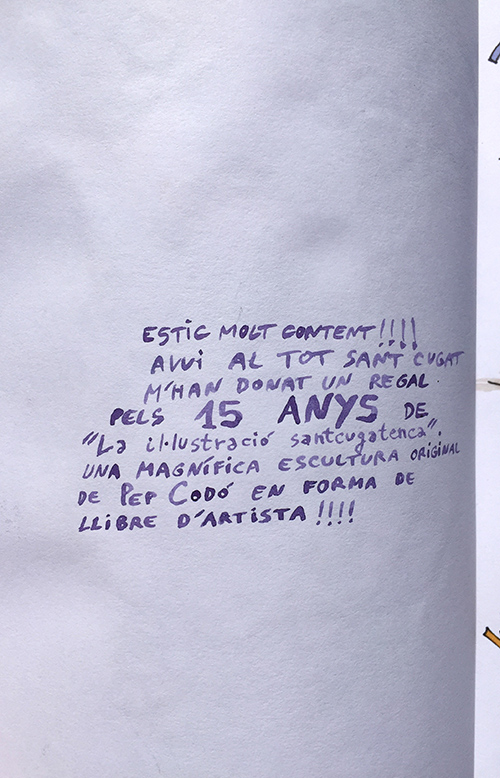 ESTIC MOLT CONTENT!!!!
AVUI AL TOT SANT CUGAT
M'HAN DONAT UN REGAL.
PELS 15 ANYS DE
"La il·lustració santcugatenca".
UNA MAGNÍFICA ESCULTURA ORIGINAL
DE PEP CODÓ EN FORMA DE
LLIBRE D'ARTISTA!!!!